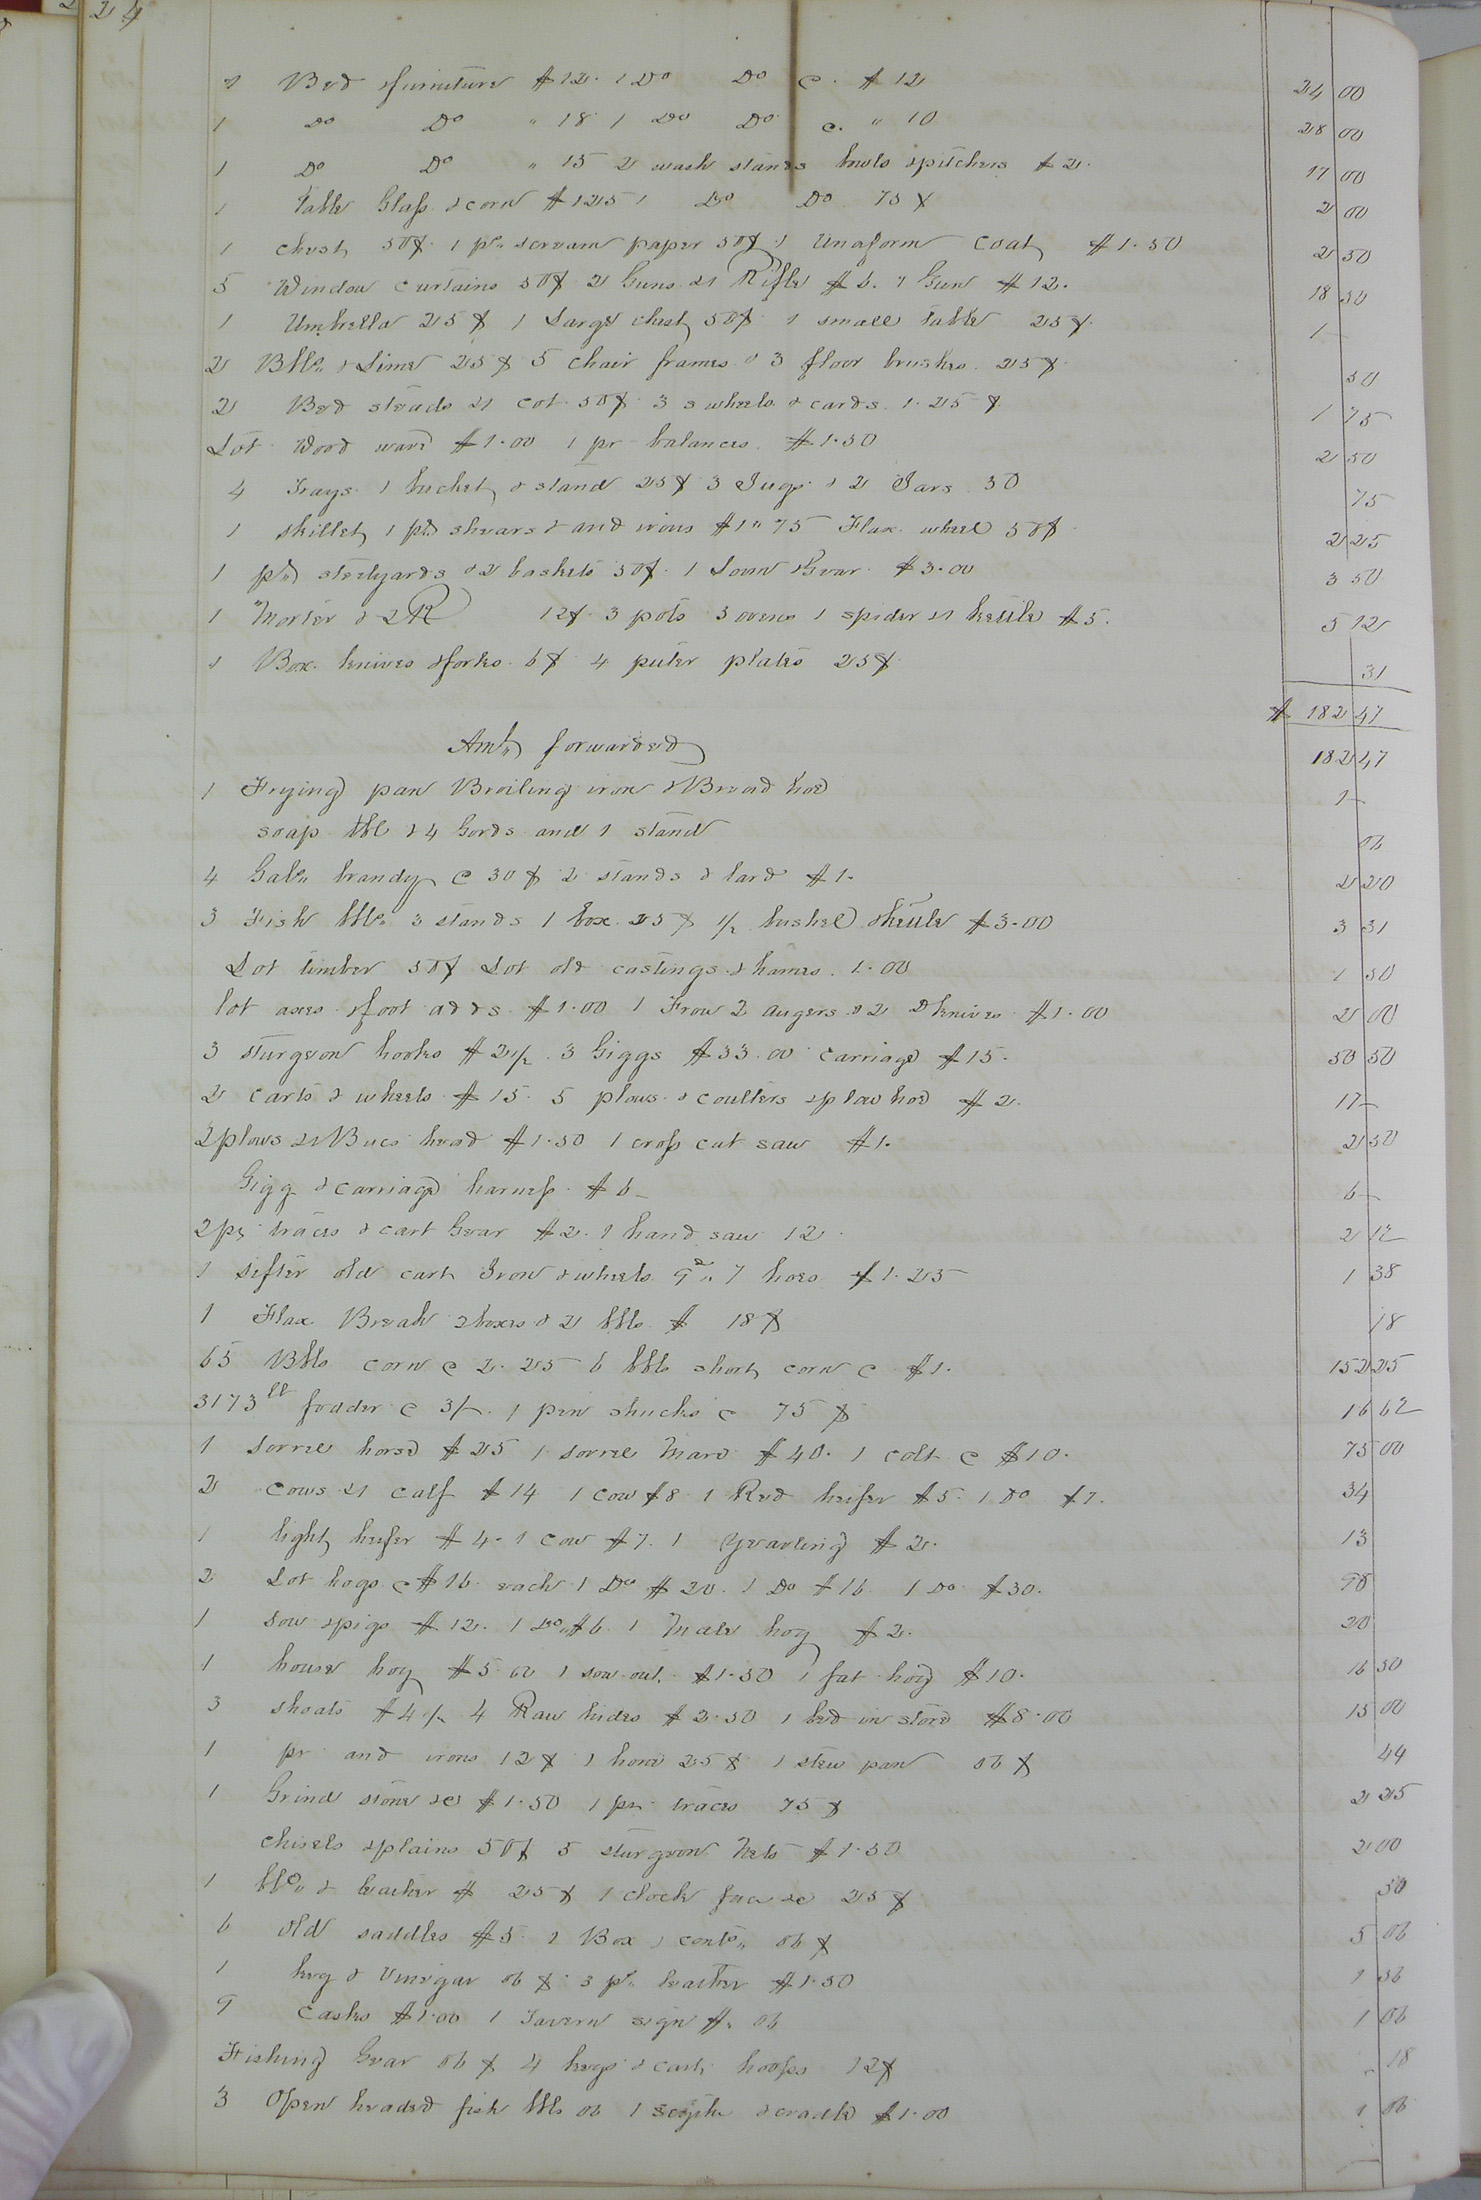 224
1 Bed & furniture $12. 1 Do Do @. $12 24 00
1 Do Do " 18 1 Do Do @. " 10 28 00
1 Do Do " 15 2 wash stands bowls & pitchers $2. 17 00
1 table Glass & corn $125 1 Do Do 75 ¢ 2 00
1 chest 50¢. 1 pr. scream paper 50¢ 1 Unaform Coat $1.50 2 50
5 Window curtains 50¢ 2 Guns & 1 Rifle $6. 1 Gun $12. 18 50
1 Umbrella 25 ¢ 1 Large chest 50¢ 1 small table 25¢. 1 —
2 Bbls. & Lime 25 ¢ 5 chair frames & 3 floor brushes. 25¢. 50
2 Bed steads & 1 cot. 50¢. 3 s wheels & cards. 1.25 ¢. 1 75
Lot Wood ware $1.00 1 pr balances. $1.50 2 50
4 Trays. 1 bucket & stand 25¢ 3 Jugs & 2 Jars. 50 75
1 skillet, 1 pr shears & and irons $1"75 Flax wheel 50¢ 2 25
1 pr steelyards & 2 baskets 50¢. 1 Loom & Gear $3.00 3 50
1 Morter & 2 R 12¢. 3 pots 3 ovens 1 spider & 1 kettle $5. 5 12
1 Box knives & forks. 6¢ 4 puter plates 25¢. 31
$ 182 47
Amt. forwarded 182 47
1 Frying pan Broiling iron & Broad hoe 1 —
soap bbl & 4 Gords and 1 stand 06
4 Gals. brandy @ 30 ¢ 2 stands & lard $1. 2 20
3 Fish bbls. 3 stands 1 box 25 ¢ 1/2 bushel & kettle $3.00 3 31
Lot timber 50¢ Lot old castings & hames. 1.00 1 50
lot axes & foot adds $1.00 1 Frow 2 augers & 2 D knives $1.00 2 00
3 sturgeon hooks $2 1/2. 3 Giggs $33.00 carriage $15. 50 50
2 carts & wheels $15. 5 plows & coulters & plow hoe $2. 17 —
2 plows & 1 Bucs head $1.50 1 cross cut saw $1. 2 50
Gigg & carriage harness $6 — 6 —
2 pr traces & cart Gear $2. 1 hand saw 12. 2 12
1 sifter old cart Iron & wheels 7 hoes $1.25 1 38
1 Flax Break 2 boxes & 2 bbls $ 18 ¢ 18
65 Bbls corn @ 2.25 6 bbls short corn @ $1. 152 25
3173 lb fodder @ 3/. 1 pen shucks @ 75 ¢ 16 62
1 sorrel horse $25 1 sorrel Mare $40. 1 colt @ $10. 75 00
2 cows & 1 calf $14 1 cow $8 1 Red heifer $5. 1 Do $7. 34
1 light heifer $4. 1 cow $7. 1 yearling $2. 13
2 Lot hogs @ $16. each 1 Do $20. 1 Do $16 1 Do $30. 98
1 sow & pigs $12. 1 Do $6. 1 Male hog $2. 20
1 house hog $5.00 1 sow out. $1.50 1 fat hog $10. 16 50
3 shoats $4 1/2 4 Raw hides $2.50 1 bed in store $8.00 15 00
1 pr and irons 12 ¢ 1 hone 25 ¢ 1 stew pan 06 ¢ 44
1 Grind stone &c $1.50 1 pr. traces 75 ¢ 2 25
chisels & plains 50¢ 5 sturgeon Nets $1.50 2 00
1 bbl. & leather $ 25 ¢ 1 clock face &c 25 ¢ 50
6 old saddles $5. 1 Box & conts. 06 ¢ 5 06
1 keg & Vinegar 06 ¢ 3 ps. leather $1.50 1 56
9 casks $1.00 1 Tavern sign $. 06 1 06
Fishing Gear 06 ¢ 4 kegs & cart hoops 12¢ 18
3 Open headed fish bbls 06 1 scythe & cradle $1.00 1 06